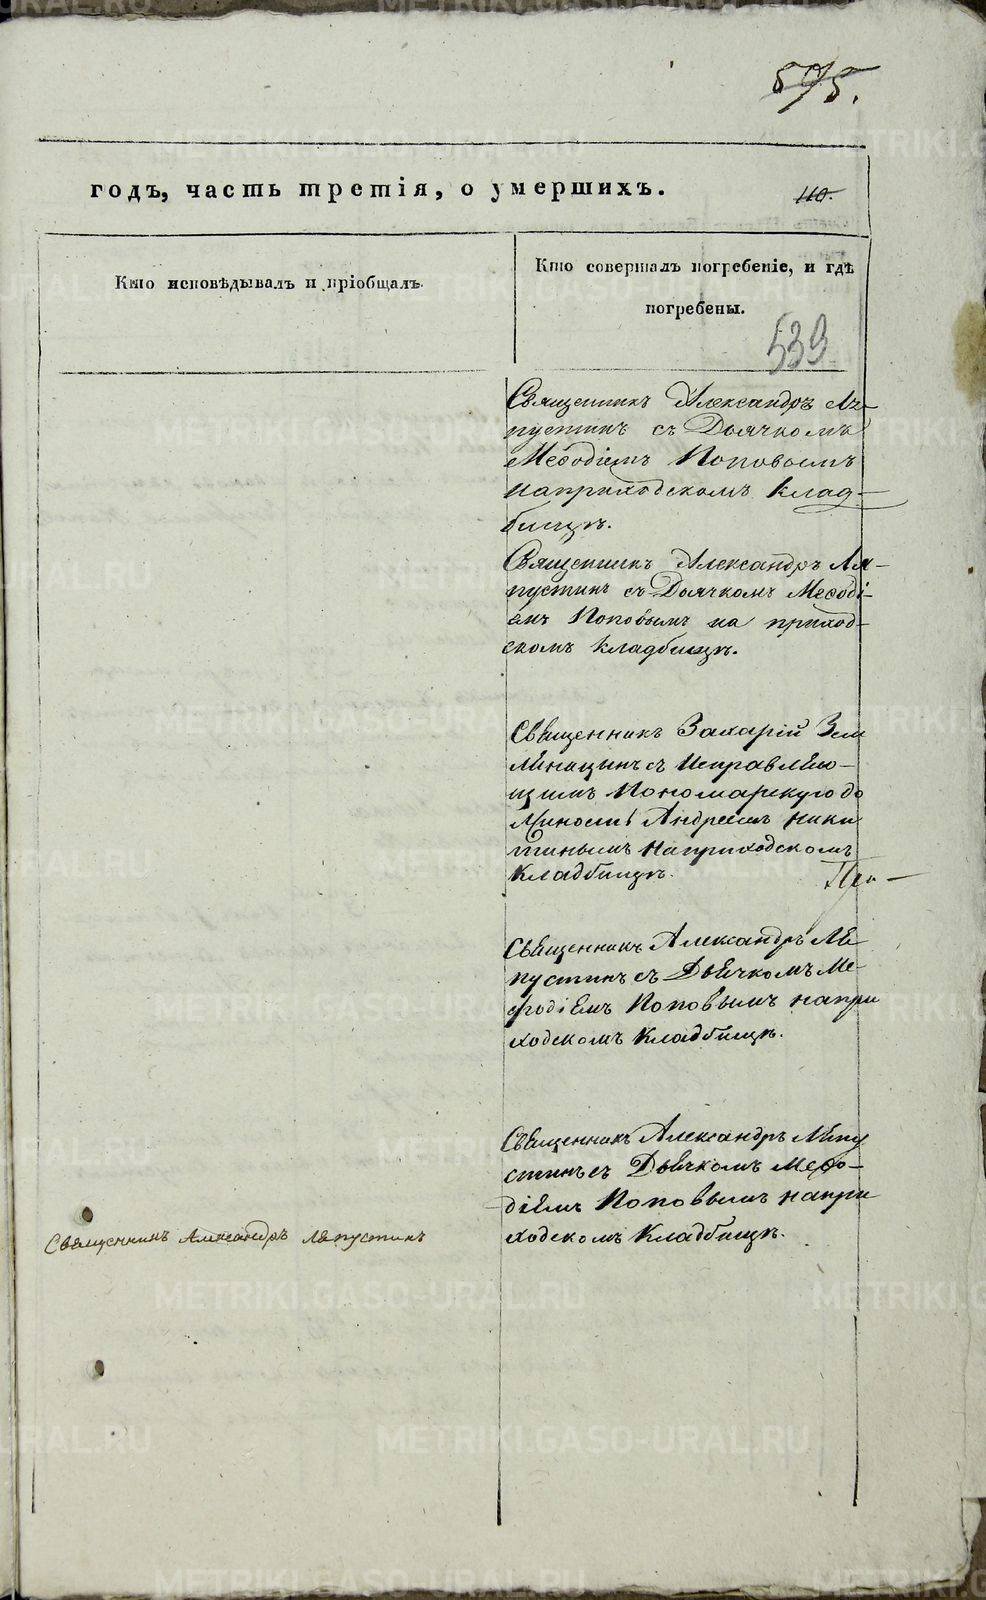 575.
годъ, часть третія, о умершихъ.
110.
Кто исповѣдывалъ и пріобщалъ.
Кто совершалъ погребеніе, и гдѣ
погребены.
539
Священникъ Александръ Ля-
пустинъ съ Дьячкомъ
Меѳодіемъ Поповымъ
наприходскомъ клад-
бищѣ.
Священникъ Александръ Ля-
пустинъ съ Дьячкомъ Меѳоді-
емъ Поповымъ на приход-
скомъ кладбищѣ.
Священникъ Захарій Зем
ляницынъ съ Исправляю-
щимъ Пономарскую до
лжность Андреемъ Ники
тинымъ наприходскомъ
Кладбищѣ.
Священникъ Александръ Ля
пустинъ съ Дьячкомъ Ме-
ѳодіемъ Поповымъ напри
ходскомъ Кладбищѣ.
Священникъ Александръ Ляпу
стинъ съ Дьячкомъ Меѳо-
діемъ Поповымъ напри
ходскомъ Кладбищѣ.
Священникъ Александръ Ляпустинъ
METRIKI.GASO-URAL.RU